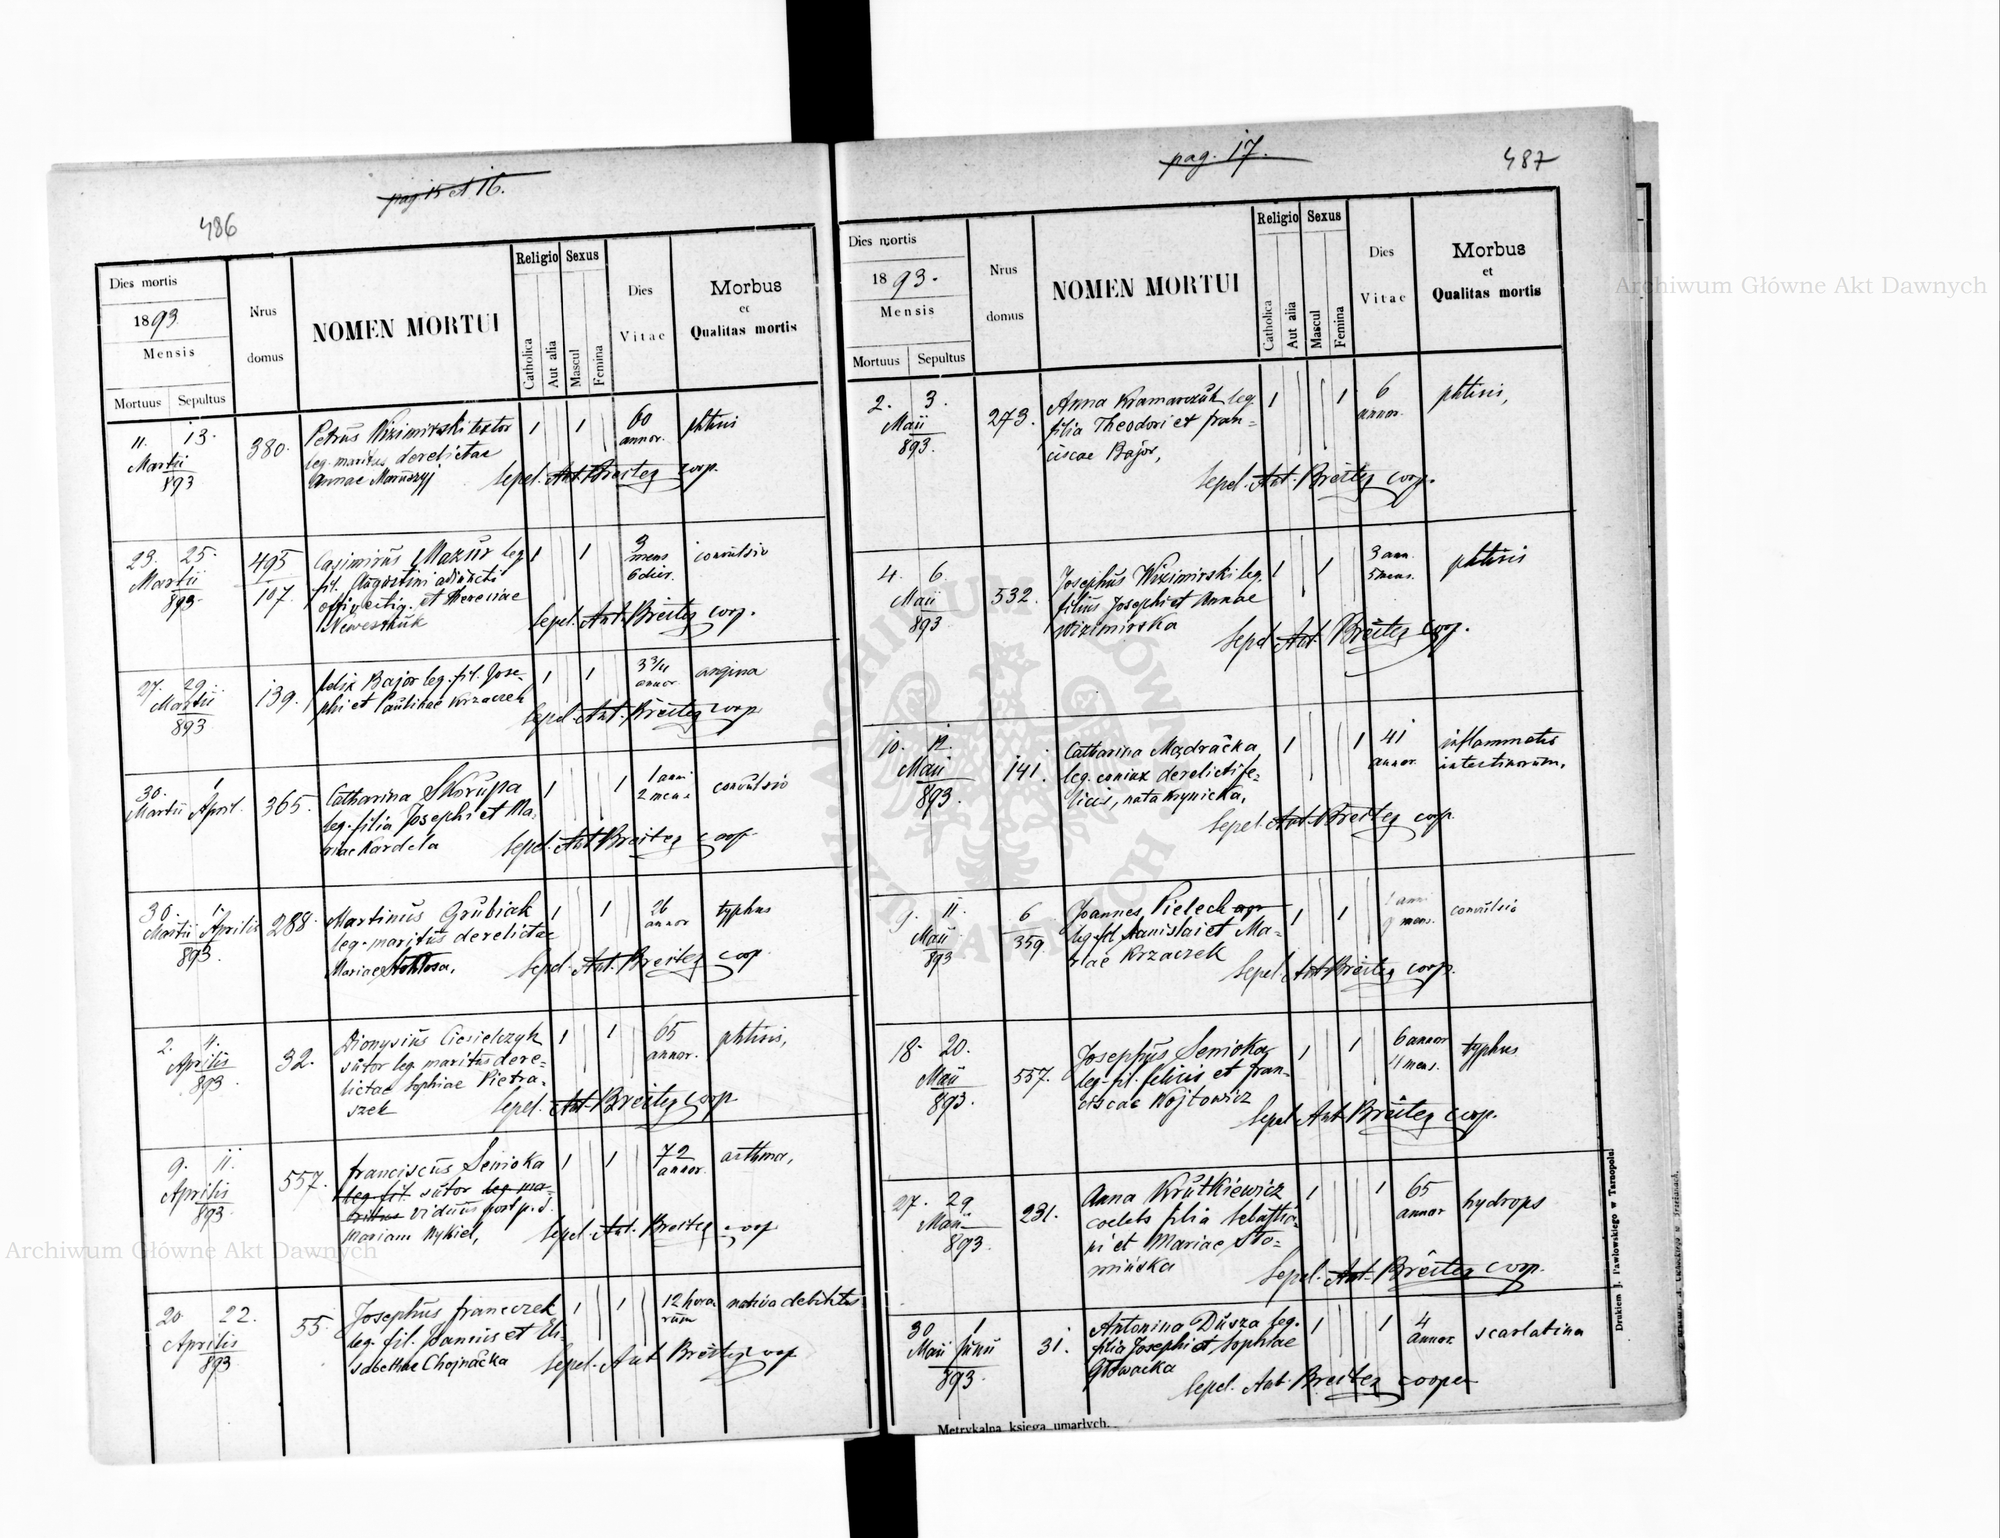 pag 15 et 16.
486
Dies mortis
1893
Mensis
Mortuus Sepultus
Nrus
domus
NOMEN MORTUI
Religio
Catholica
Aut alia
Sexus
Mascul
Femina
Dies
Vitae
Morbus
et
Qualitas mortis
11. 13.
Martii
893
380.
Petrus Wizimirski textor
leg. maritus derelictae
Annae Maruszyj
1 1
60
annor.
phtisis
Sepel. Ant. Breiter coop.
23. 25.
Martii
893.
495
107.
Casimirus Mazur leg
fil. Augustini adiuncti
offi vectig. et Tereniae
Neweszczuk
1 1
3
mens
6 dier.
convulsio
Sepel. Ant. Breiter coop.
27. 29.
Martii
893
139.
Felix Bajor leg. fil. Jose-
phi et Paulinae Krzaczek
1 1
3 3/4
annor.
angina
Sepel. Ant. Breiter coop
30. 1
Martii April.
365.
Catharina Skorupa
leg. filia Josephi et Ma-
riae Kardela
1 1
1 anni
2 mens
convulsio
Sepel. Ant Breiter coop
30. 1.
Martii Aprilis
893.
288.
Martinus Grubiak
leg. maritus derelictae
Mariae Stoktosa,
1 1
26
annor
typhus
Sepel. Ant. Breiter coop.
2. 4.
Aprilis
893.
32.
Dionysius Ciesielczyk
sutor leg maritus dere-
lictae Sophiae Pietra-
szek
1 1
65
annor.
phtisis,
Sepel. Ant. Breiter coop
9. 11.
Aprilis
893
557.
Franciscus Senioka
leg. fil. sutor leg ma-
ritus viduus post p. d.
Mariam Kykiel,
1 1
72
annor.
asthma,
Sepel. Ant. Breiter coop
20. 22.
Aprilis
893
55.
Josephus Franczek
leg. fil. Joannis et Eli-
sabethae Chojnacka
1 1
12 hora-
rum
nativa debilitas
Sepel. Ant Breiter coop
pag. 17.
487
Dies mortis
1893.
Mensis
Mortuus Sepultus
Nrus
domus
NOMEN MORTUI
Religio
Catholica
Aut alia
Sexus
Mascul
Femina
Dies
Vitae
Morbus
et
Qualitas mortis
2. 3.
Maii
893.
273.
Anna Kramarczuk leg
filia Theodori et Fran-
ciscae Bajor,
1 1
6
annor.
phtisis,
Sepel. Ant. Breiter coop.
4. 6.
Maii
893
532.
Josephus Wizimirski leg.
filius Josephi et Annae
Wizimirska
1 1
3 ann.
5 mens.
phtisis
Sepel. Ant. Breiter coop.
10. 12.
Maii
893.
141.
Catharina Mądracka,
leg. coniux derelicti Fe-
licis, nata Krynicka,
1 1
41
annor.
inflammatio
intestinorum,
Sepel. Ant. Breiter coop.
9. 11.
Maii
893
6
359.
Joannes Pielech
leg. fil Stanislai et Ma-
riae Krzaczek
1 1
1 anni
9 mens.
convulsio
Sepel. Ant Breiter coop.
18. 20.
Maii
893.
557.
Josephus Senioka
leg. fil. Felicis et Fran-
ciscae Wojtowicz
1 1
6 annor
4 mens.
typhus
Sepel Ant Breiter coop.
27. 29
Maii
893.
231.
Anna Krutkiewicz
coelebs filia Sebastia-
ni et Mariae Sto-
mińska
1 1
65
annor
hydrops
Sepel. Ant. Breiter coop.
30 1
Maii Junii
893.
31.
Antonina Dusza leg.
filia Josephi et Sophiae
Głowacka
1 1
4
annor.
scarlatina
Sepel. Ant. Breiter cooper
Metrykalna księga umarłych.
Drukiem J. Pawłowskiego w Tarnopolu.
Archiwum Główne Akt Dawnych
Archiwum Główne Akt Dawnych
ARCHIWUM GŁÓWNE AKT DAWNYCH